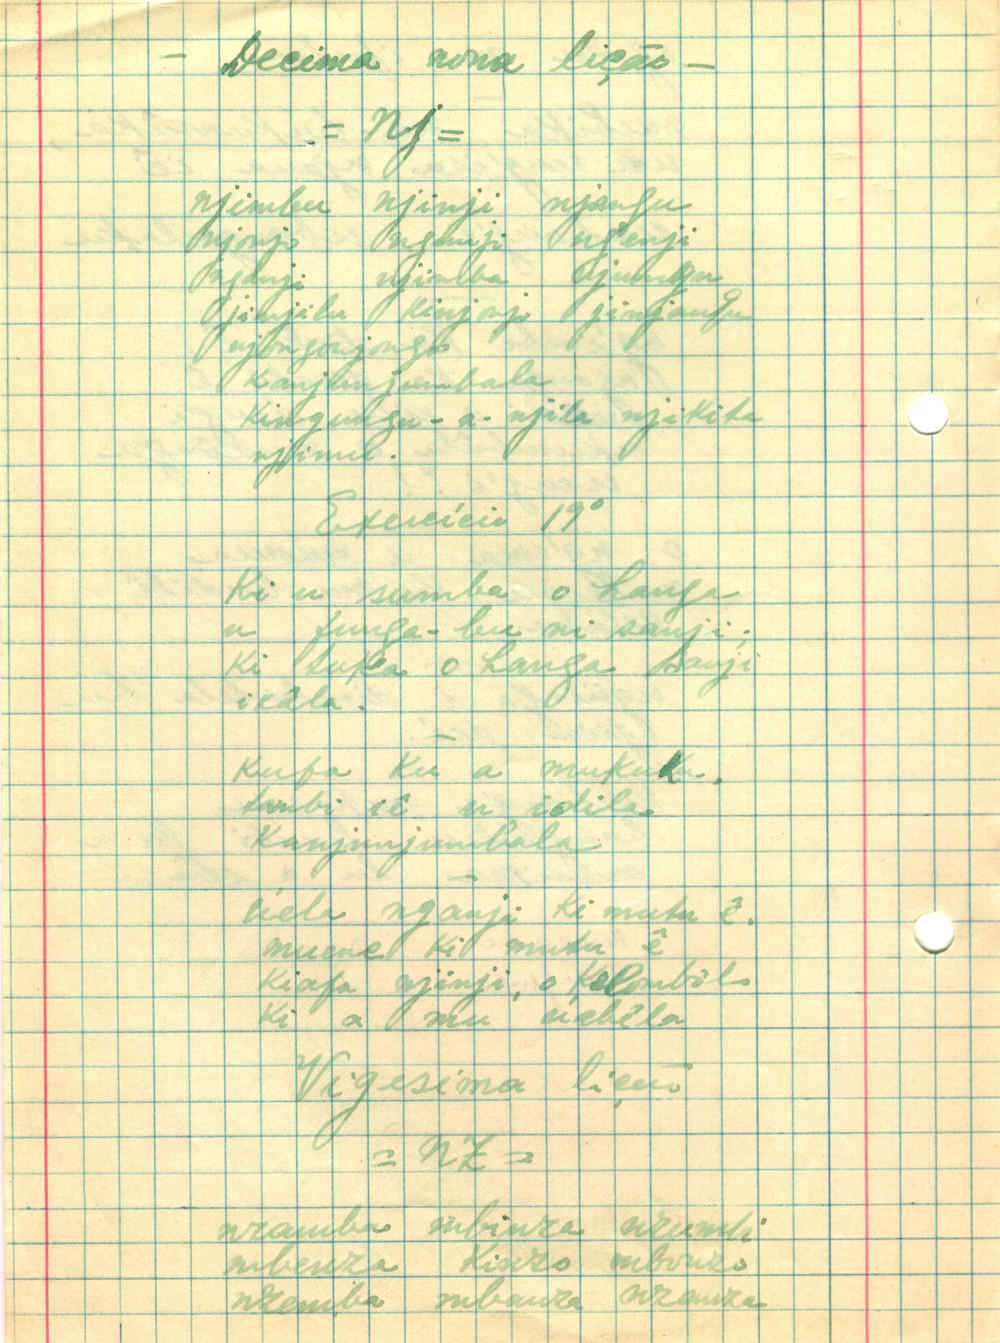 - Decima nona lição -
= Nj =
njimbu njinji njangu
njonjo nganji ngenji
nganji njimba njungu
jinjilu Kinjonjo jinjangu
njongonjongo
Kanjunjumbala
Kingungu-a-njila njikita
njimu.
Exercício 19º
Ki u sumba o hanga
u funga-bu ni sanji;
Ki tuka o hanga sanji
ixala.
Kufa Ku a mukuku,
tambi ié u idila
Kanjunjumbala
uela nganji Ki mutu ê.
muene Ki mutu ê
Kiafa njinji, o
Ki a mu
Vigesima lição
= NZ =
nzamba mbinza nzumbi
mbenza Kinzo mbonzo
nzemba mbanza nzanza